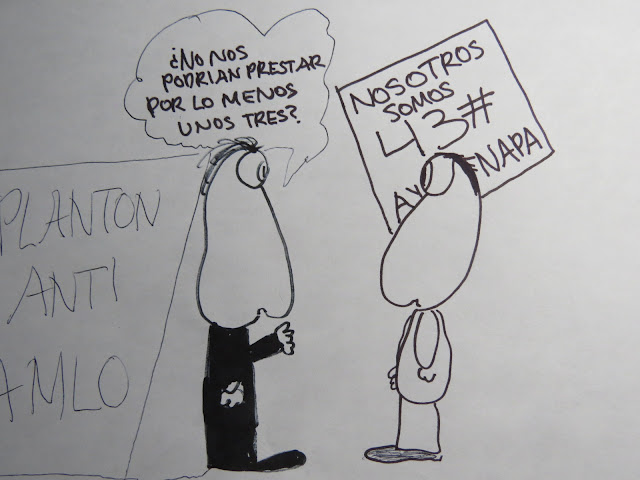 ¿NO NOS
PODRIAN PRESTAR
POR LO MENOS
UNOS TRES?
NOSOTROS
SOMOS
43#
AY NAPA
PLANTON
ANTI
AMLO